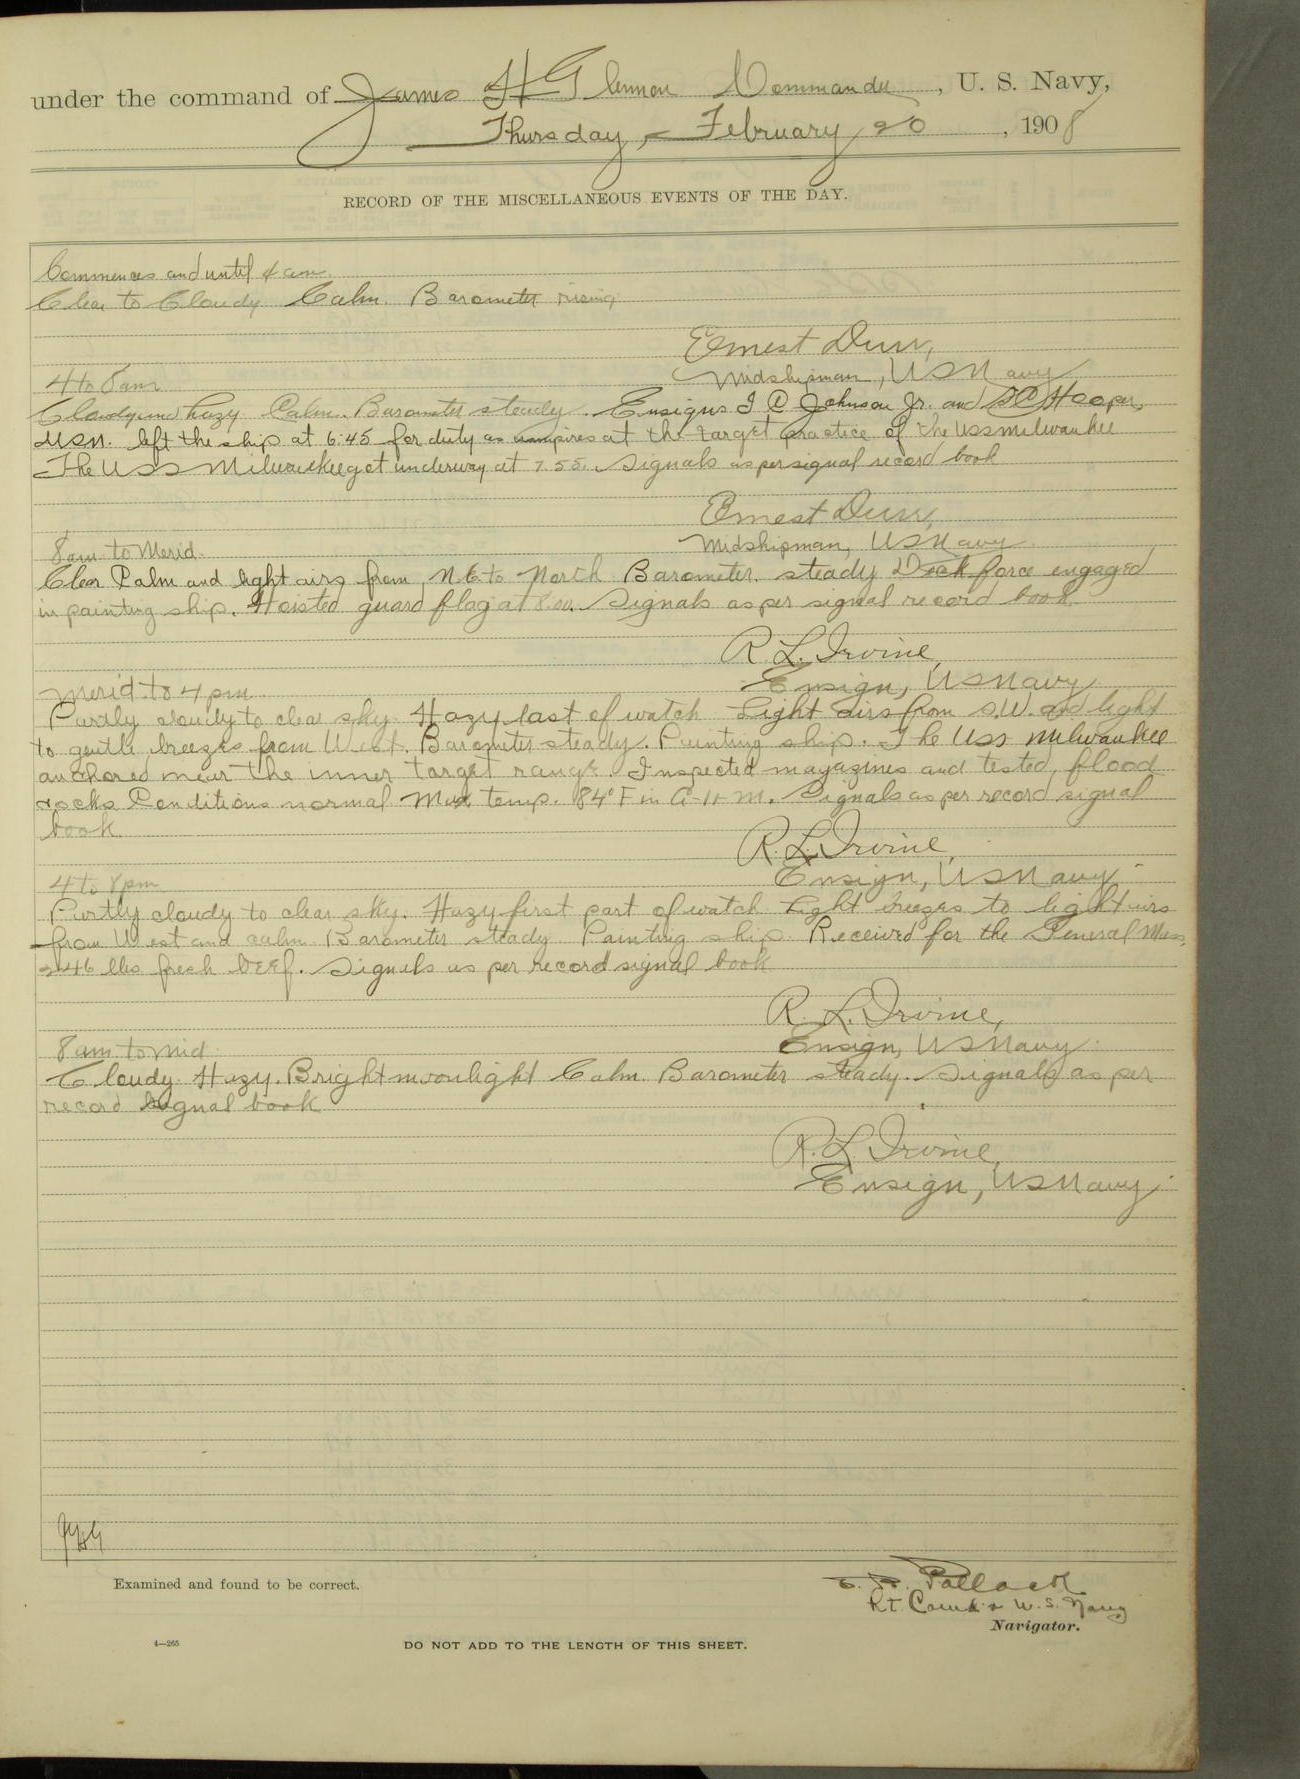 under the command of James H Glennon Commander, U. S. Navy,
Thursday, February 20, 1908
RECORD OF THE MISCELLANEOUS EVENTS OF THE DAY.
Commences and until 4 am.
Clear to Cloudy Calm. Barometer rising
Ernest Durr,
Midshipman, USNavy
4 to 8 am
Cloudy and hazy Calm. Barometer steady. Ensigns I C Johnson Jr. and S C Hooper,
USN. left the ship at 6:45 for duty as umpires at the target practice of the USS Milwaukee
The USS Milwaukee got underway at 7.55. Signals as per signal record book
Ernest Durr,
Midshipman, USNavy.
8 am to Merid.
Clear Calm and light airs from NE to North Barometer. steady Deck force engaged
in painting ship. Hoisted guard flag at 8.00. Signals as per signal record book.
R. L. Irvine,
Ensign, USNavy
Merid. to 4 pm
Partly cloudy to clear sky Hazy last of watch Light airs from S.W. and light
to gentle breezes from West. Barometer steady. Painting ship. The USS Milwaukee
anchored near the inner target range. Inspected magazines and tested flood
cocks Conditions normal Max temp. 84° F in A-11-M. Signals as per record signal
book
R. L. Irvine,
Ensign, USNavy
4 to 8 pm
Partly cloudy to clear sky. Hazy first part of watch Light breezes to light airs
from West and calm Barometer steady Painting ship Received for the General Mess,
246 lbs fresh beef. Signals as per record signal book
R. L. Irvine,
Ensign, USNavy.
8 am to mid
Cloudy. Hazy. Bright moonlight Calm Barometer steady. Signals as per
record signal book
R. L. Irvine,
Ensign, USNavy.
JHG
Examined and found to be correct.
Pollock
Lt. Comdr U.S. Navy
Navigator.
4—265
DO NOT ADD TO THE LENGTH OF THIS SHEET.